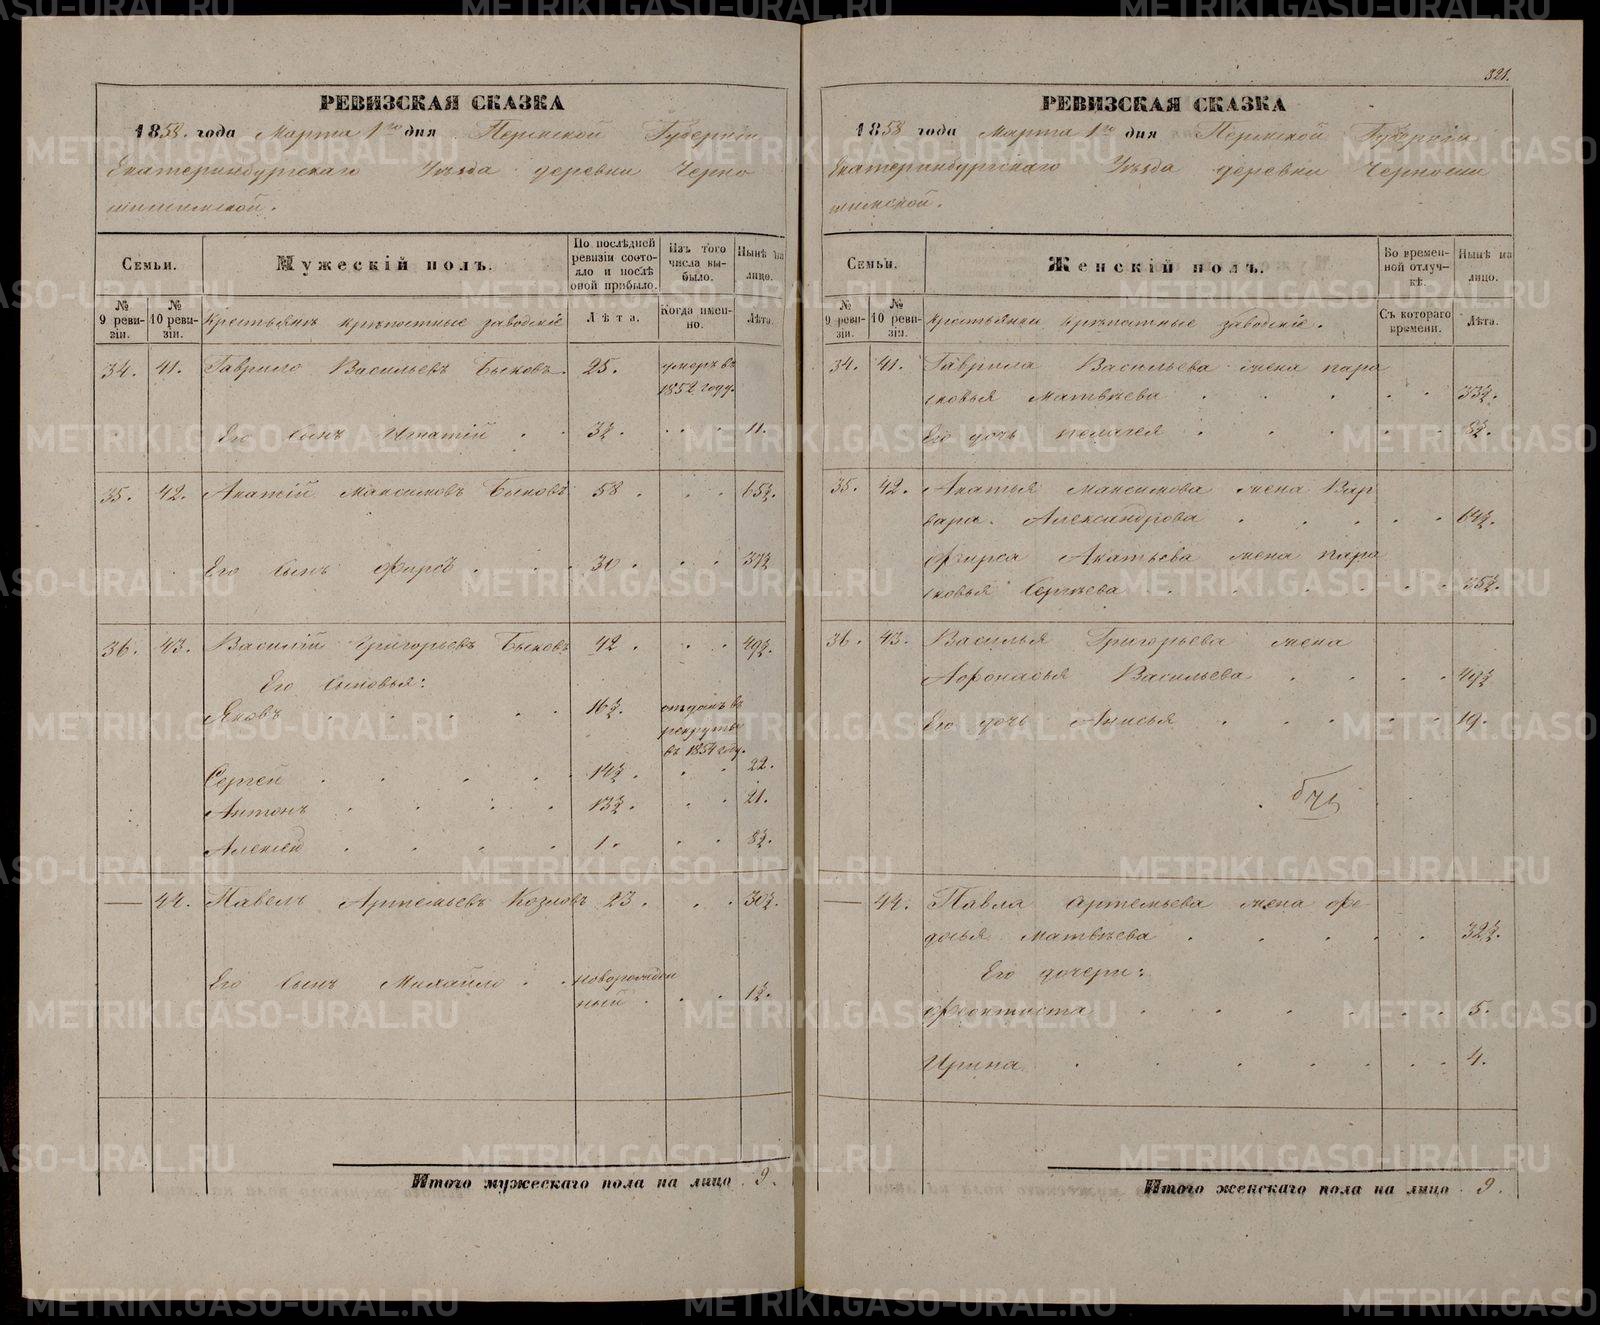 321.
РЕВИЗСКАЯ СКАЗКА
1858 года Марта 1го дня Пермской Губернiи
Екатеринбургскаго Уѣзда деревни Черно
шишимской.
Семьи.
Мужескiй полъ.
По послѣдней ревизiи состояло и послѣ оной прибыло.
Изъ того числа выбыло.
Нынѣ на лицо.
№ 9 ревизiи.
№ 10 ревизiи.
Крестьянъ крѣпостные заводскiе
Лѣта.
Когда именно.
Лѣта.
34. 41. Гаврило Васильевъ Быковъ. 25. умеръ въ
1852 году.
Его сынъ Игнатiй . . 3½. . . . 11.
35. 42. Акатiй Максимовъ Быковъ 58 . . . 65½.
Его сынъ Фирсъ . . . 30 . . . 37½
36. 43. Василiй Григорьевъ Быковъ 42 . . . 49½.
Его сыновья:
Яковъ . . . . . 16½. отданъ въ
рекруты
въ 1854 году.
Сергей . . . . . 14½ . . . 22.
Антонъ . . . . 13½ . . . 21.
Алексей . . . . 1. . . 8½.
— 44. Павелъ Артемьевъ Козловъ 23. . . 30½.
Его сынъ Михайло . . новорожден
ный . . . 1½.
Итого мужескаго пола на лицо 9.
РЕВИЗСКАЯ СКАЗКА
1858 года Марта 1го дня Пермской Губернiи
Екатеринбургскаго Уѣзда деревни Черноши
шимской.
Семьи.
Женскiй полъ.
Во временной отлучкѣ.
Нынѣ на лицо.
№ 9 ревизiи.
№ 10 ревизiи.
Крестьянки крѣпостные заводскiе.
Съ котораго времени.
Лѣта.
34. 41. Гаврила Васильева жена Пара
сковья Матвѣева . . . . . 33½.
Его дочь Пелагея . . . . . 8½.
35. 42. Акатья Максимова жена Вар
вара Александрова . . . . . 64½.
Фирса Акатьева жена Пара
сковья Сергѣева . . . . . 35½.
36. 43. Василья Григорьева жена
Афонасья Васильева . . . . 49½
Его дочь Анисья . . . . . 19.
— 44. Павла Артемьева жена Фе-
досья Матвѣева . . . . . 32½.
Его дочери:
Феоктиста . . . . . . 5.
Ирина . . . . . . 4.
Итого женскаго пола на лицо 9.
METRIKI.GASO-URAL.RU